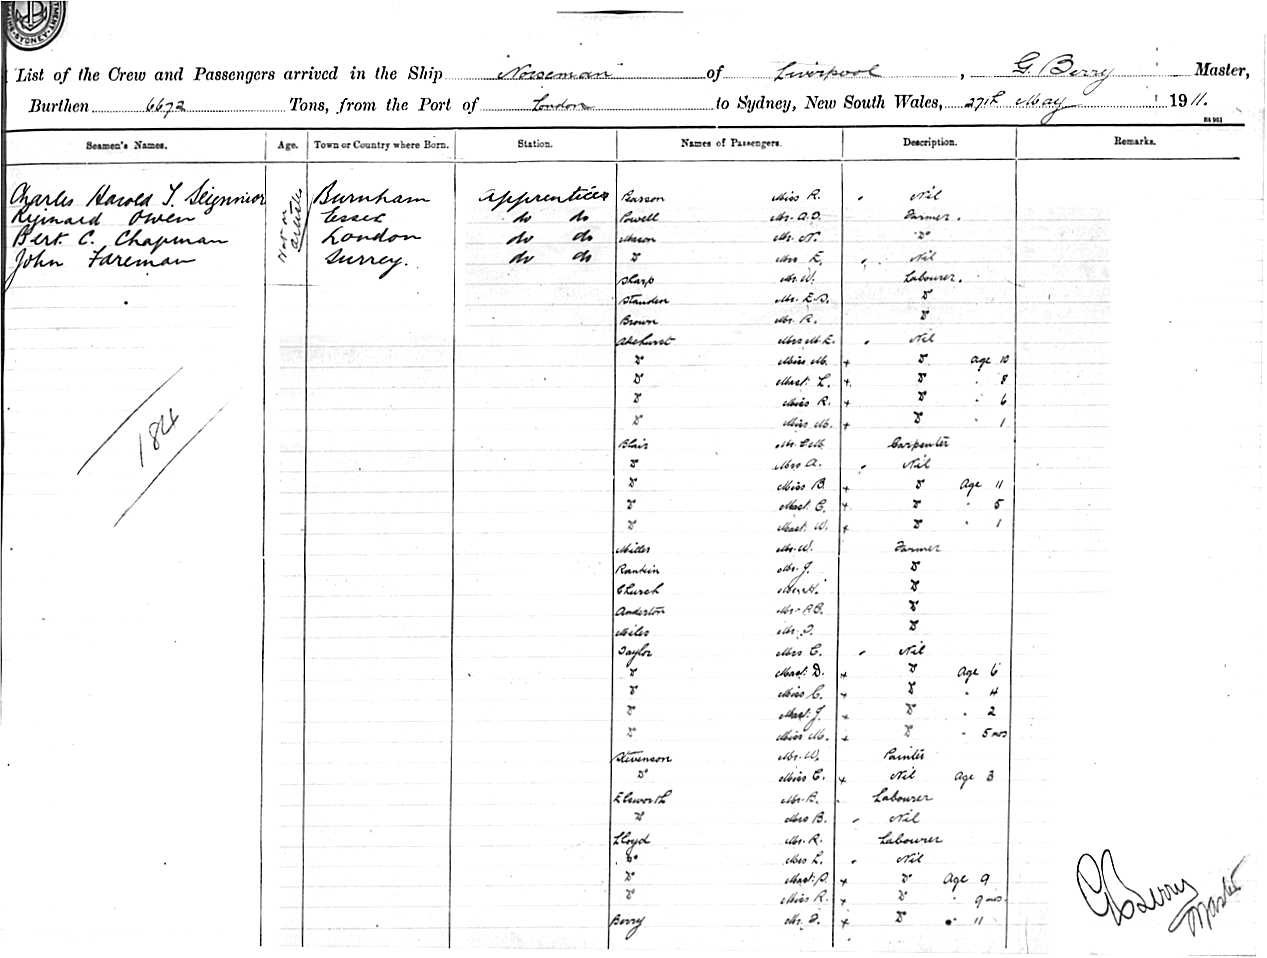 SYDNEY
List of the Crew and Passengers arrived in the Ship Norseman of Liverpool, G. Berry Master,
Burthen 6672 Tons, from the Port of London to Sydney, New South Wales, 27th May 1911.
Seamen's Names. Age. Town or Country where Born. Station. Names of Passengers. Description. Remarks.
Not on articles
Charles Harold T. Burnham Apprentices Miss R. " Nil
Reginard Owen Essex do do Powell Mr. A.D. Farmer.
Bert. C. Chapman London do do Mason Mr. N. Do
John Fareman Surrey. do do Do Mrs E. " Nil
Sharp Mr. W. Labourer.
Standen Mr. E.S. Do
Brown Mr. R. Do
Akehurst Mrs M.E. " Nil
Do Miss M. + Do Age 10
Do Mast. L. + Do " 8
Do Miss R. + Do " 6
Do Miss M. + Do " 1
184
Blair Mr. C.M. Carpenter
Do Mrs A. " Nil
Do Miss B. + Do Age 11
Do Mast. C. + Do " 5
Do Mast. W. + Do " 1
Mr. W. Farmer
Rankin Mr. J. Do
Church Mr. H. Do
Anderton Mr. Do
Miles Mr. Do
Taylor Mrs C. " Nil
Do Mast. D. + Do Age 6
Do Miss C. + Do " 4
Do Mast. J. + Do " 2
Do Miss M. + Do " 5 mos
Stevenson Mr. W. Painter
Do Miss C. + Nil Age 3
Elsworth Mr. B. Labourer
Do Mrs B. " Nil
Lloyd Mr. R. Labourer
Do Mrs L. " Nil
Do Mast. + Do Age 9
Do Miss R. + Do " 9 mos.
Berry Mr. + Do " 11
G Berry
Master